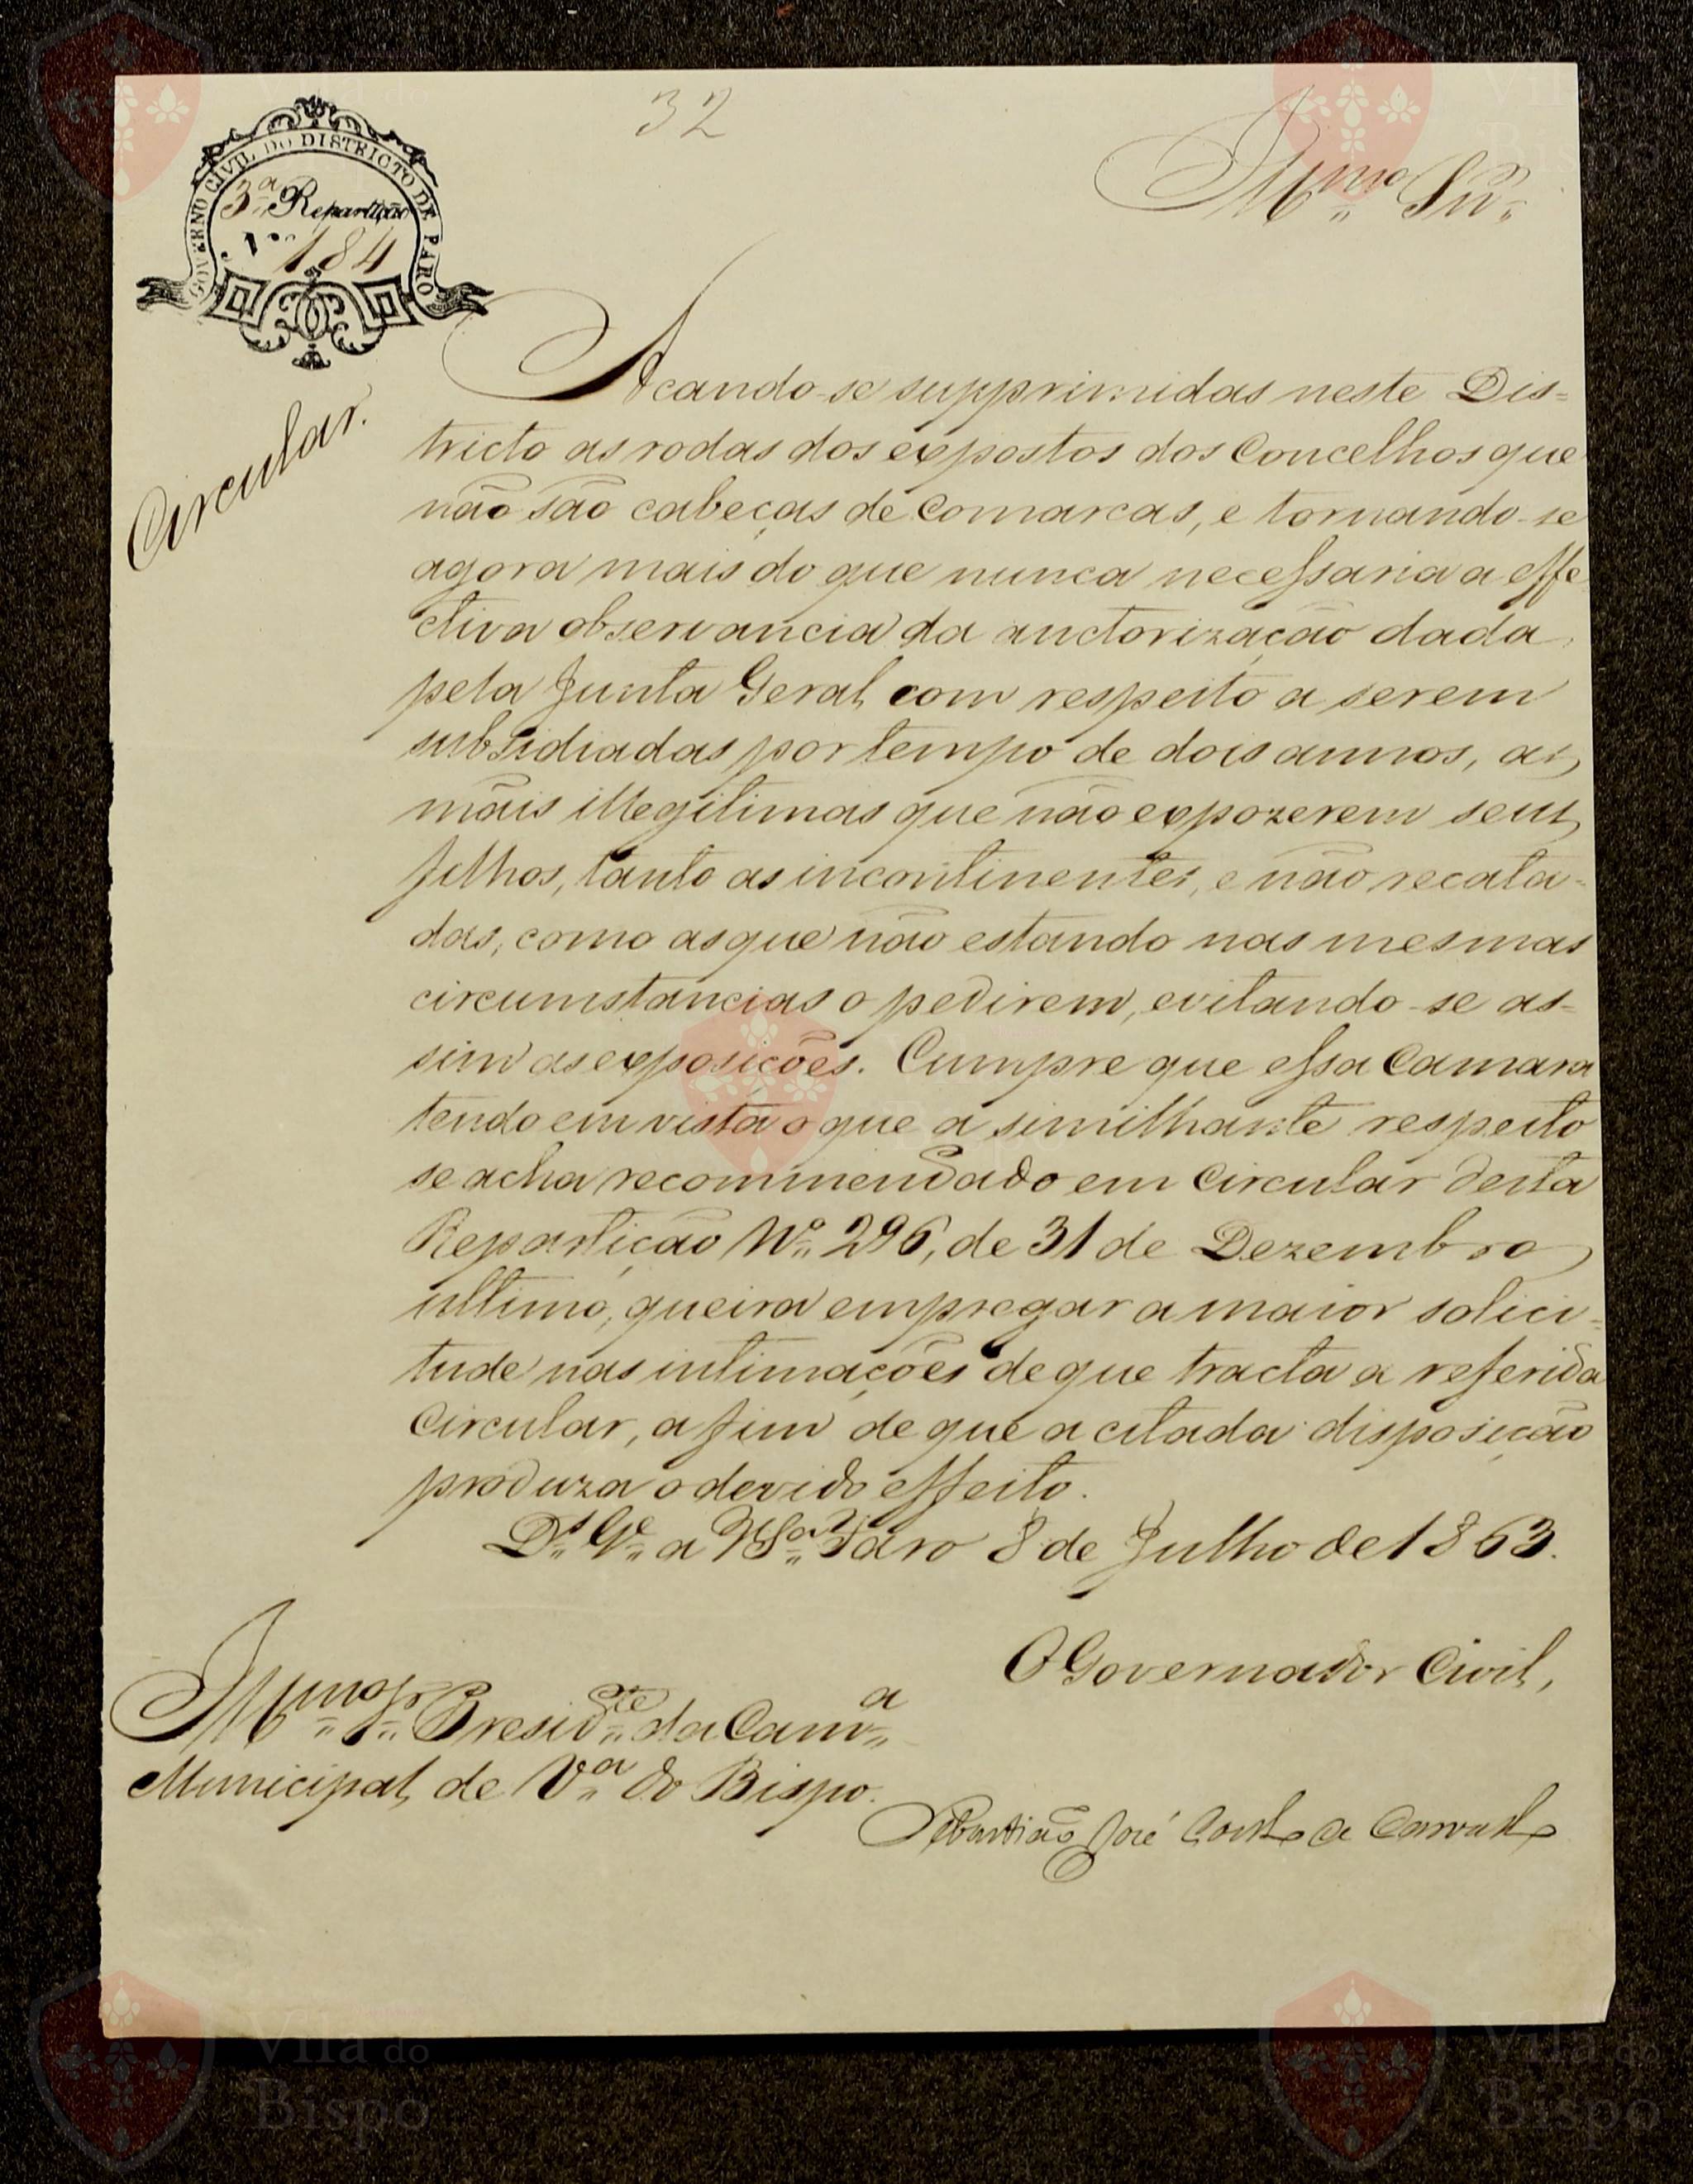 32
GOVERNO CIVIL DO DISTRICTO DE FARO
3.ª Repartição
N.º 184
Illmo Snr.
Circular.
Ficando-se supprimidas neste Dis=
tricto as rodas dos expostos dos Concelhos que
não são cabeças de Comarcas, e tornando-se
agora mais do que nunca necessaria a effe
ctiva observancia da auctorização dada
pela Junta Geral, com respeito a serem
subsidiadas por tempo de dois annos, as
mãis illegitimas que não expozerem seus
filhos, tanto as incontinentes, e não recata-
das, como as que não estando nas mesmas
circumstancias o pedirem, evitando-se as-
sim as exposições. Cumpre que essa Camara
tendo em vista o que a similhante respeito
se acha recommendado em Circular desta
Repartição Nº 296, de 31 de Dezembro
ultimo, queira empregar a maior solici=
tude nas intimações de que tracta a referida
Circular, a fim de que a citada disposição
produza o devido effeito.
Ds. Ge. a V. Sa. Faro 8 de Julho de 1863.
O Governador Civil,
Illmo Sr. Presidte da Cama
Municipal, de Va do Bispo.
Sebastião José Coelho de Carvalho
Vila do
Bispo
Vila do
Bispo